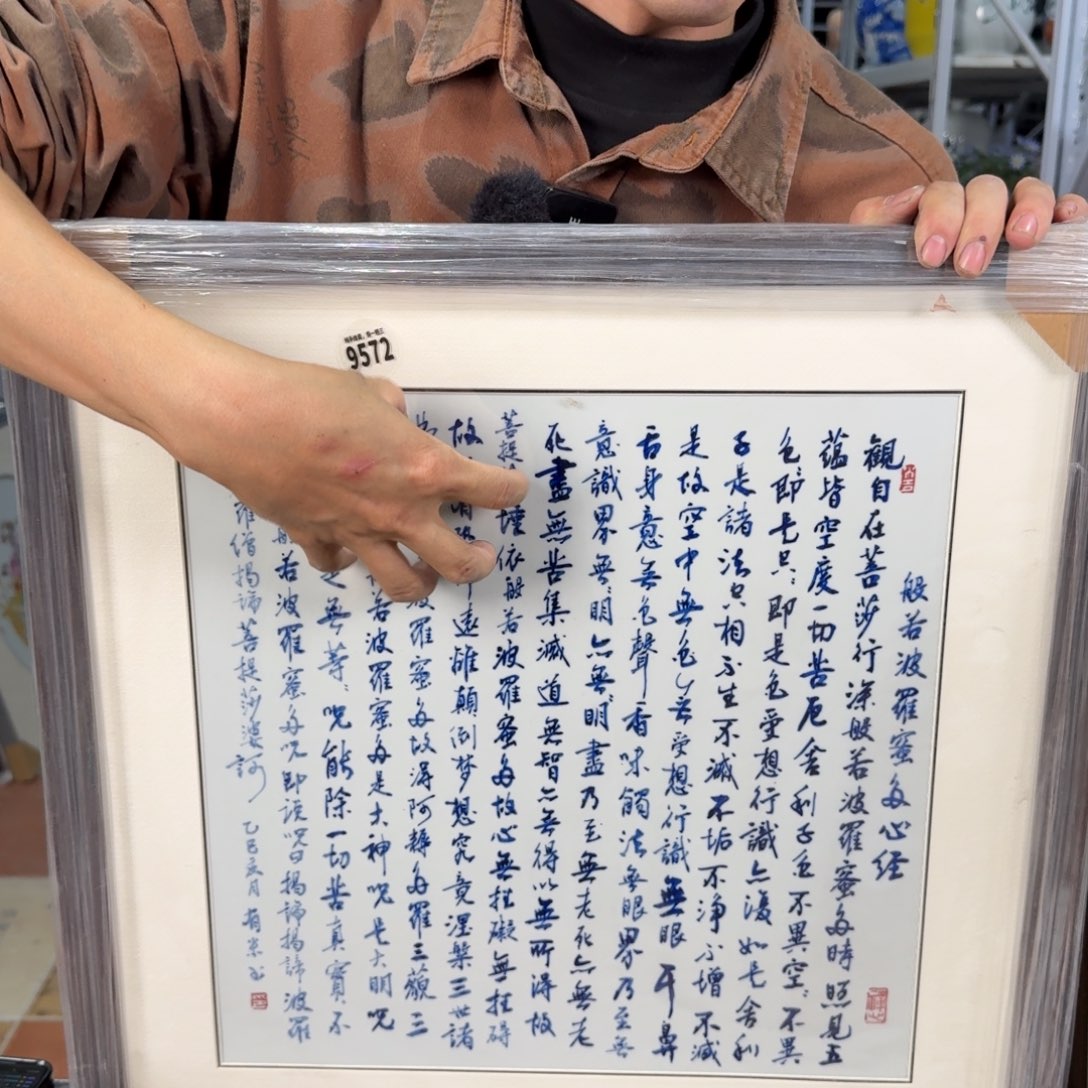 9572
般若波羅蜜多心经
觀自在菩薩行深般若波羅蜜多時照見五
蕴皆空度一切苦厄舍利子色不異空〻不異
色〻即是空〻即是色受想行識亦復如是舍利
子是諸法空相不生不滅不垢不淨不增不減
是故空中無色無受想行識無眼耳鼻
舌身意無色聲香味觸法無眼界乃至無
意識界無〻明亦無〻明盡乃至無老死亦無老
死盡無苦集滅道無智亦無得以無所得故
菩提埵依般若波羅蜜多故心無挂礙無挂碍
故遠離顛倒梦想究竟涅槃三世諸
波羅蜜多故得阿耨多羅三藐三
若波羅蜜多是大神咒是大明咒
無等〻咒能除一切苦真實不
般若波羅蜜多咒即説咒曰揭諦揭諦波羅
羅僧揭諦菩提薩婆訶 乙巳亥月